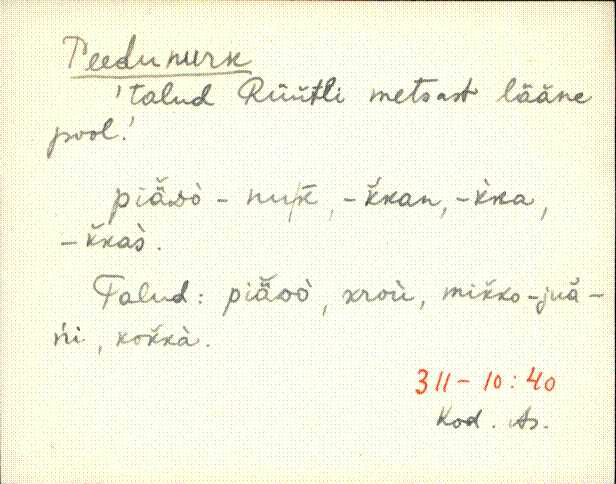 Peedu nurk
'talud Rüütli metsast lääne
pool.'
piä̆ᴅò - nuŗk, -k̆kan, -k̀ka,
-k̆kas̀.
Talud: piä̆ᴅò, xroù, mik̆ko-juă-
ńi, kok̆kà.
311-10:40
Kod. As.